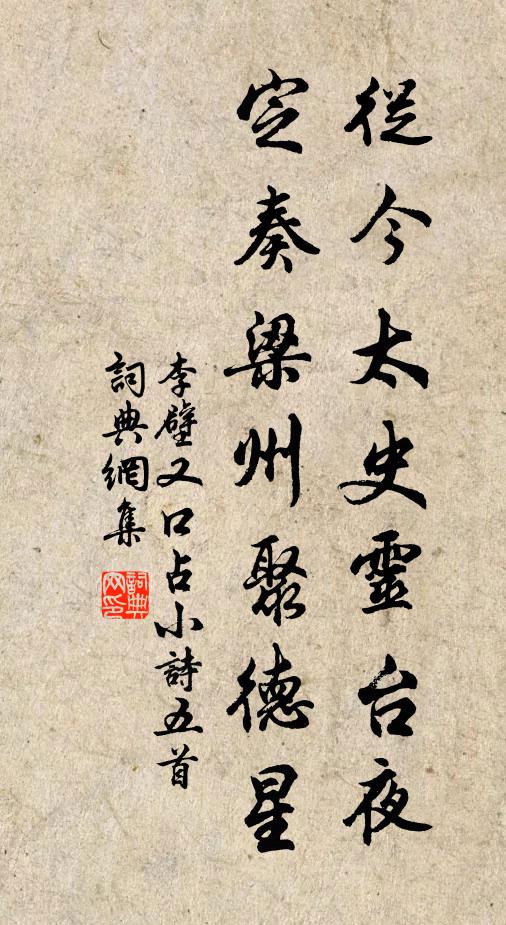 從今太史靈台夜
定奏梁州聚德星
李壁又口占小詩五首
詞典網集
詞典网印